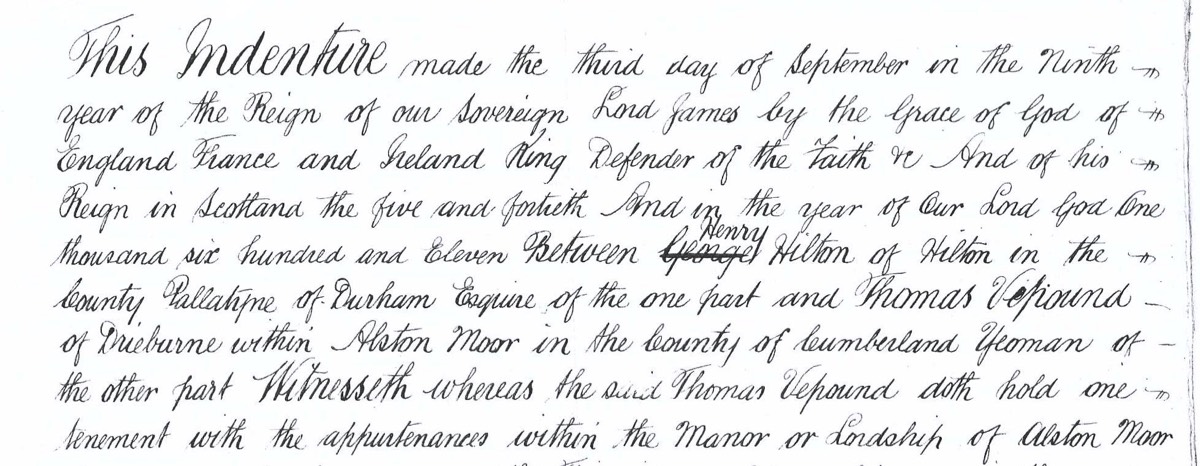 This Indenture made the third day of September in the Ninth
year of the Reign of our Sovereign Lord James by the Grace of God of
England France and Ireland King Defender of the Faith &c And of his
Reign in Scotland the five and fortieth And in the year of Our Lord God One
Henry
thousand six hundred and Eleven Between George Hilton of Hilton in the
County Pallatyne of Durham Esquire of the one part and Thomas Vepound
of Drieburne within Alston Moor in the County of Cumberland Yeoman of
the other part Witnesseth whereas the said Thomas Vepound doth hold one
tenement with the appurtenances within the Manor or Lordship of Alston Moor